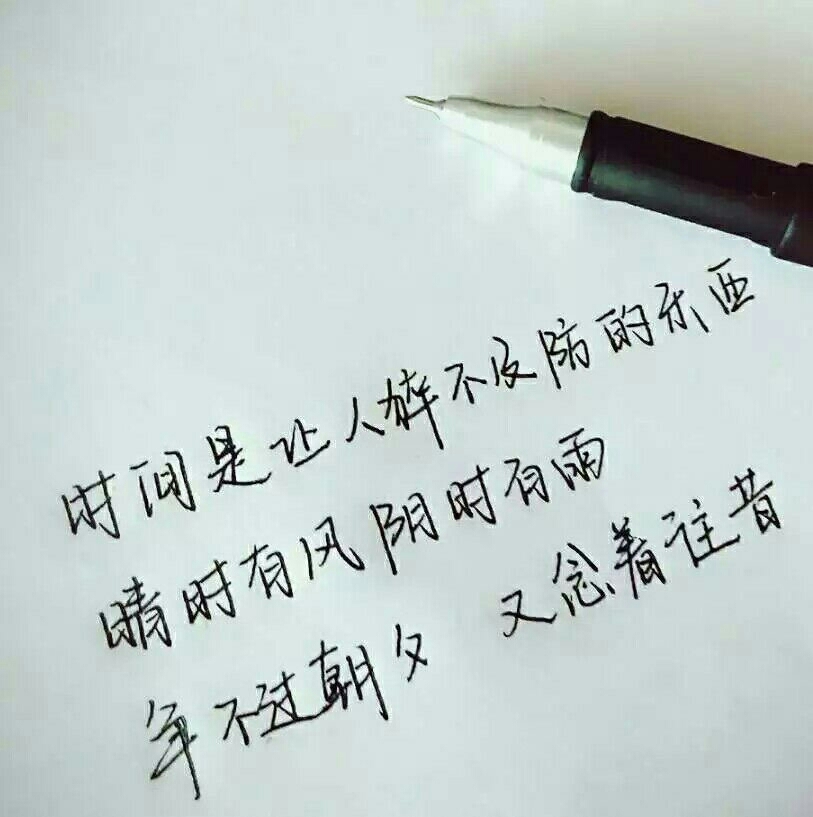 时间是让人猝不及防的东西
晴时有风阴时有雨
争不过朝夕 又念着往昔